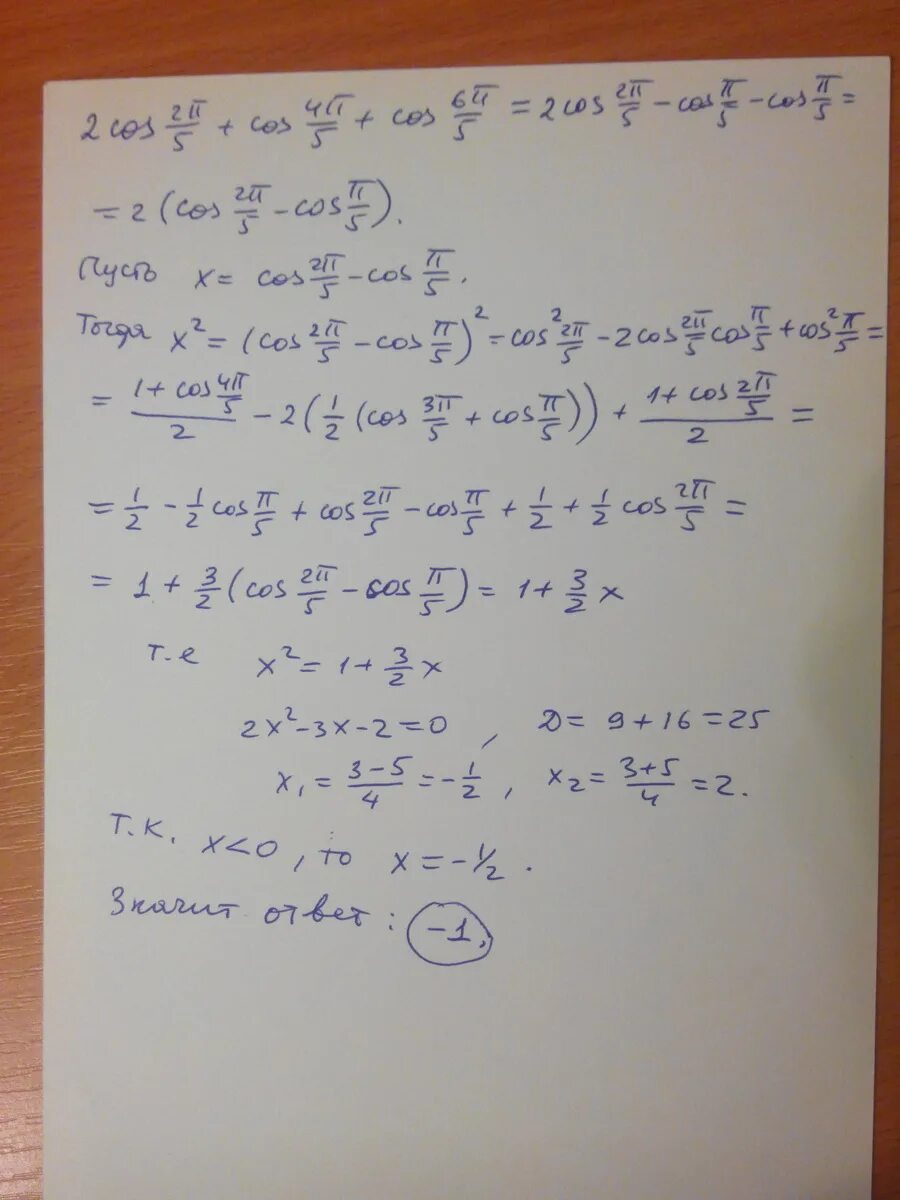 2cos 2π/5 + cos 4π/5 + cos 6π/5 = 2cos 2π/5 − cos π/5 − cos π/5 =
= 2 (cos 2π/5 − cos π/5).
Пусть x = cos 2π/5 − cos π/5.
Тогда x² = (cos 2π/5 − cos π/5)² = cos² 2π/5 − 2cos 2π/5 cos π/5 + cos² π/5 =
= (1 + cos 4π/5)/2 − 2(1/2 (cos 3π/5 + cos π/5)) + (1 + cos 2π/5)/2 =
= 1/2 − 1/2 cos π/5 + cos 2π/5 − cos π/5 + 1/2 + 1/2 cos 2π/5 =
= 1 + 3/2 (cos 2π/5 − cos π/5) = 1 + 3/2 x
т.е x² = 1 + 3/2 x
2x² − 3x − 2 = 0, D = 9 + 16 = 25
x₁ = (3−5)/4 = −1/2, x₂ = (3+5)/4 = 2.
Т.К. x<0, то x = −1/2.
Значит ответ: −1.